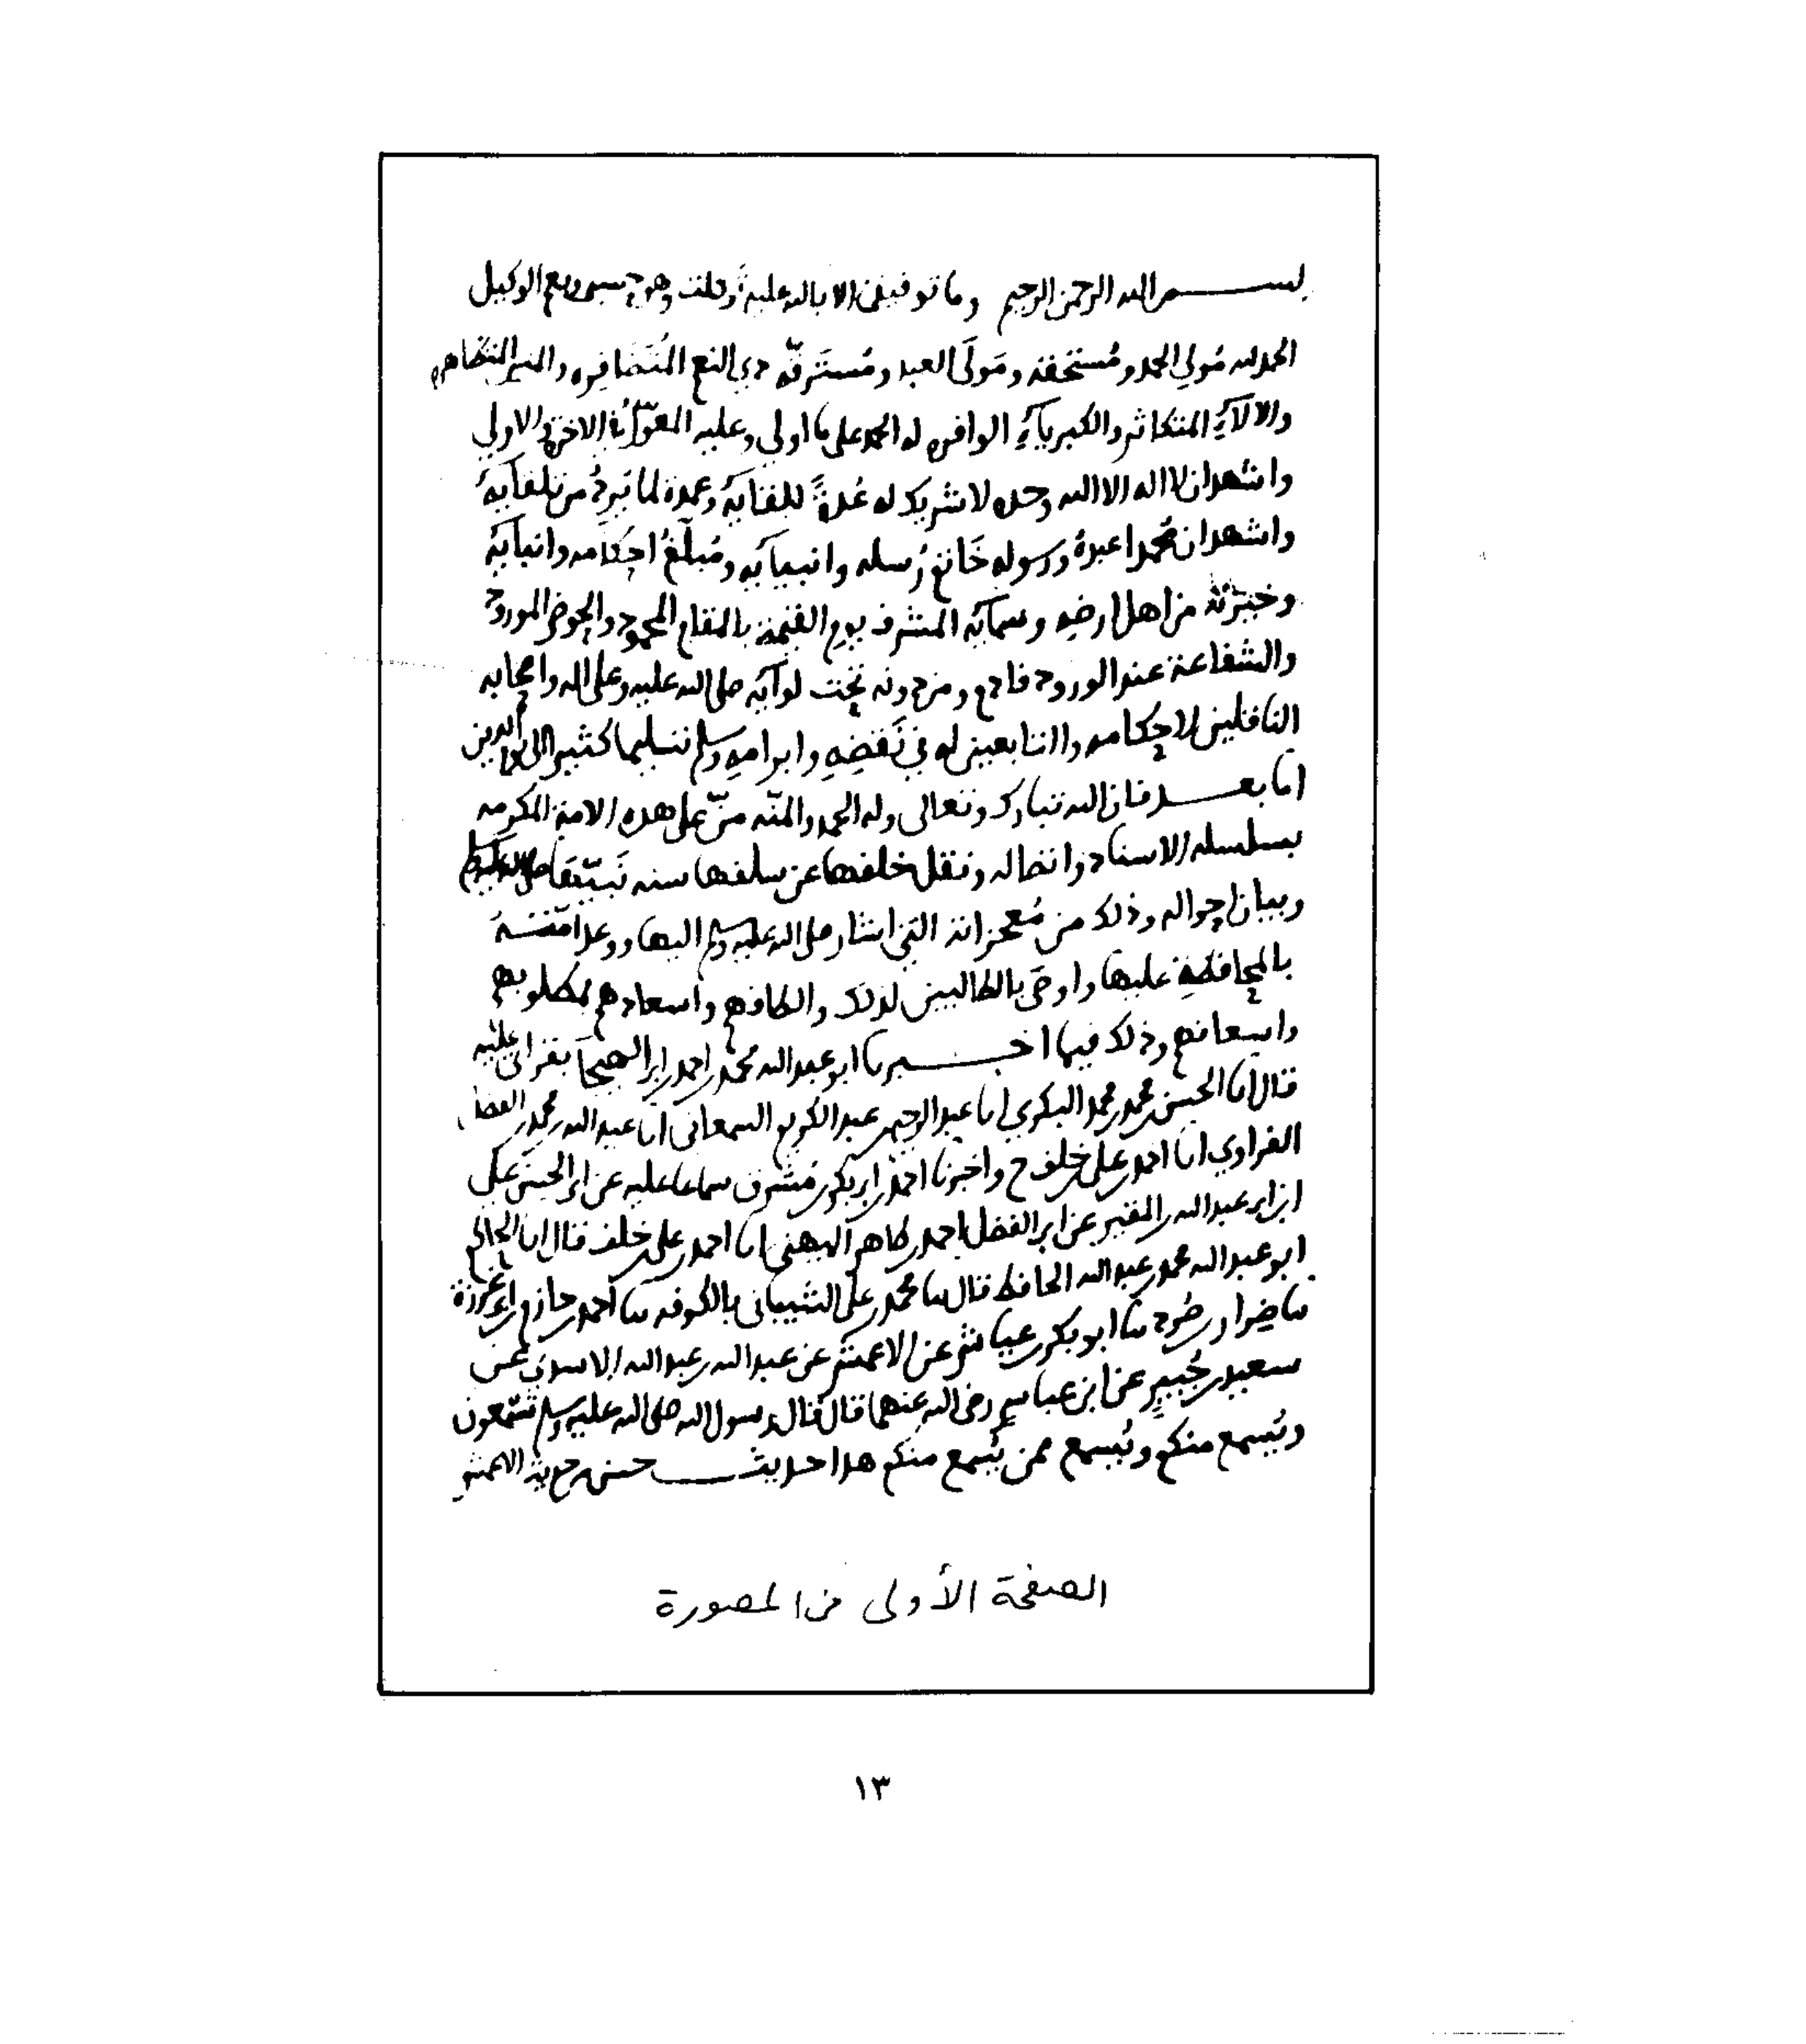 بسم الله الرحمن الرحيم وما توفيقي الا بالله عليه توكلت وهو حسبي ونعم الوكيل
الحمد لله مُولي الحمد ومُستحقه ومَولَى العبد ومُستَرقّه ذي النعم المُتَضَافِره والمنن المتظاهره
والالآءِ المتكاثره والكبريآءِ الوافره له الحمد على ما اولى وعليه المعوّل في الاخرة والاولى
واشهد ان لا اله الا الله وحده لا شريك له عُدةً للقايهِ وعمدة لما يَرِدُ من تلقآيهِ
واشهد ان محمدا عبدهُ ورسوله خَاتم رُسله وانبيايه ومُبلّغُ احكامه وانبآيهِ
وخيرته من اهل ارضِه وسمآيه المشرف يوم القيمة بالمقام المحمود والحوض المورود
والشفاعة عند الورود فادم ومن دونه تحت لوآيه صلى الله عليه وعلى اله واصحابه
الناقلين لاحكامه والتابعين له في نَقضِهِ وابرامهِ وسلم تسليما كثيرا الى يوم الدين
اما بعد فان الله تبارك وتعالى وله الحمد والمنّه منّ على هذه الامة المكرمه
بسلسله الاسناد واتصاله ونقل خلفها عن سلفها سنه نَبيّها صلى الله عليه وسلم
وبيان احواله وذلك من مُعجزاته التي اشار صلى الله عليه وسلم اليها ووعد امته
بالمحافظةِ عليها واوصَى بالطالبين لذلك والطافهم واسعادهم بمطلوبهم
واسعافهم وذلك فيما اخبرنا ابو عبد الله محمد بن احمد بن ابي الهيجآ بقراتي عليه
قال انا الحسن بن محمد بن محمد البكري انا عبد الرحيم بن عبد الكريم السمعاني انا عبد الله بن محمد بن الفضل
الفراوي انا احمد بن علي بن خلف ح واخبرنا احمد بن ابي بكر بن مُشرف سماعا عليه عن ابي الحسن علي
ابن ابي عبد الله بن المقير عن ابي الفضل احمد بن طاهر الميهني انا احمد بن علي بن خلف قال انا الحاكم
ابو عبد الله محمد بن عبد الله الحافظ قال نا محمد بن علي الشيباني بالكوفه نا احمد بن حازم بن ابي غرزة
نا ضِرار بن صُرد نا ابو بكر بن عياش عن الاعمش عن عبد الله بن عبد الله عن
سعيد بن جُبيرٍ عن ابن عباس رضي الله عنهما قال قال رسول الله صلى الله عليه وسلم تسمعون
ويُسمع منكم ويُسمع ممن يُسمع منكم هذا حديث حسن من حديث الاعمش
الصفحة الأولى من المصورة
١٣